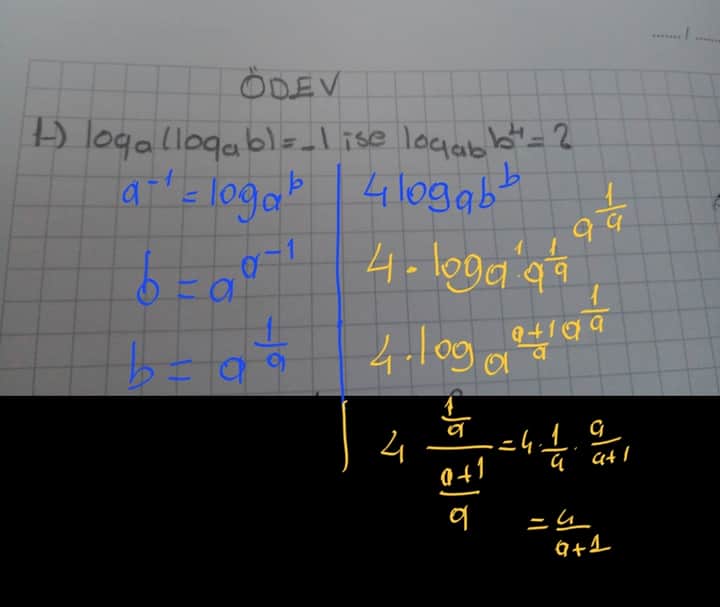 ÖDEV
1-) logₐ(logₐb)=-1 ise logₐb b⁴=?
a⁻¹ = logₐb
b = a^a⁻¹
b = a^(1/a)
4 logab b
4. logₐ¹.ₐ^(1/a) a^(1/a)
4. logₐ^((a+1)/a) a^(1/a)
4 (1/a)/((a+1)/a) = 4. 1/a . a/(a+1)
= 4/(a+1)